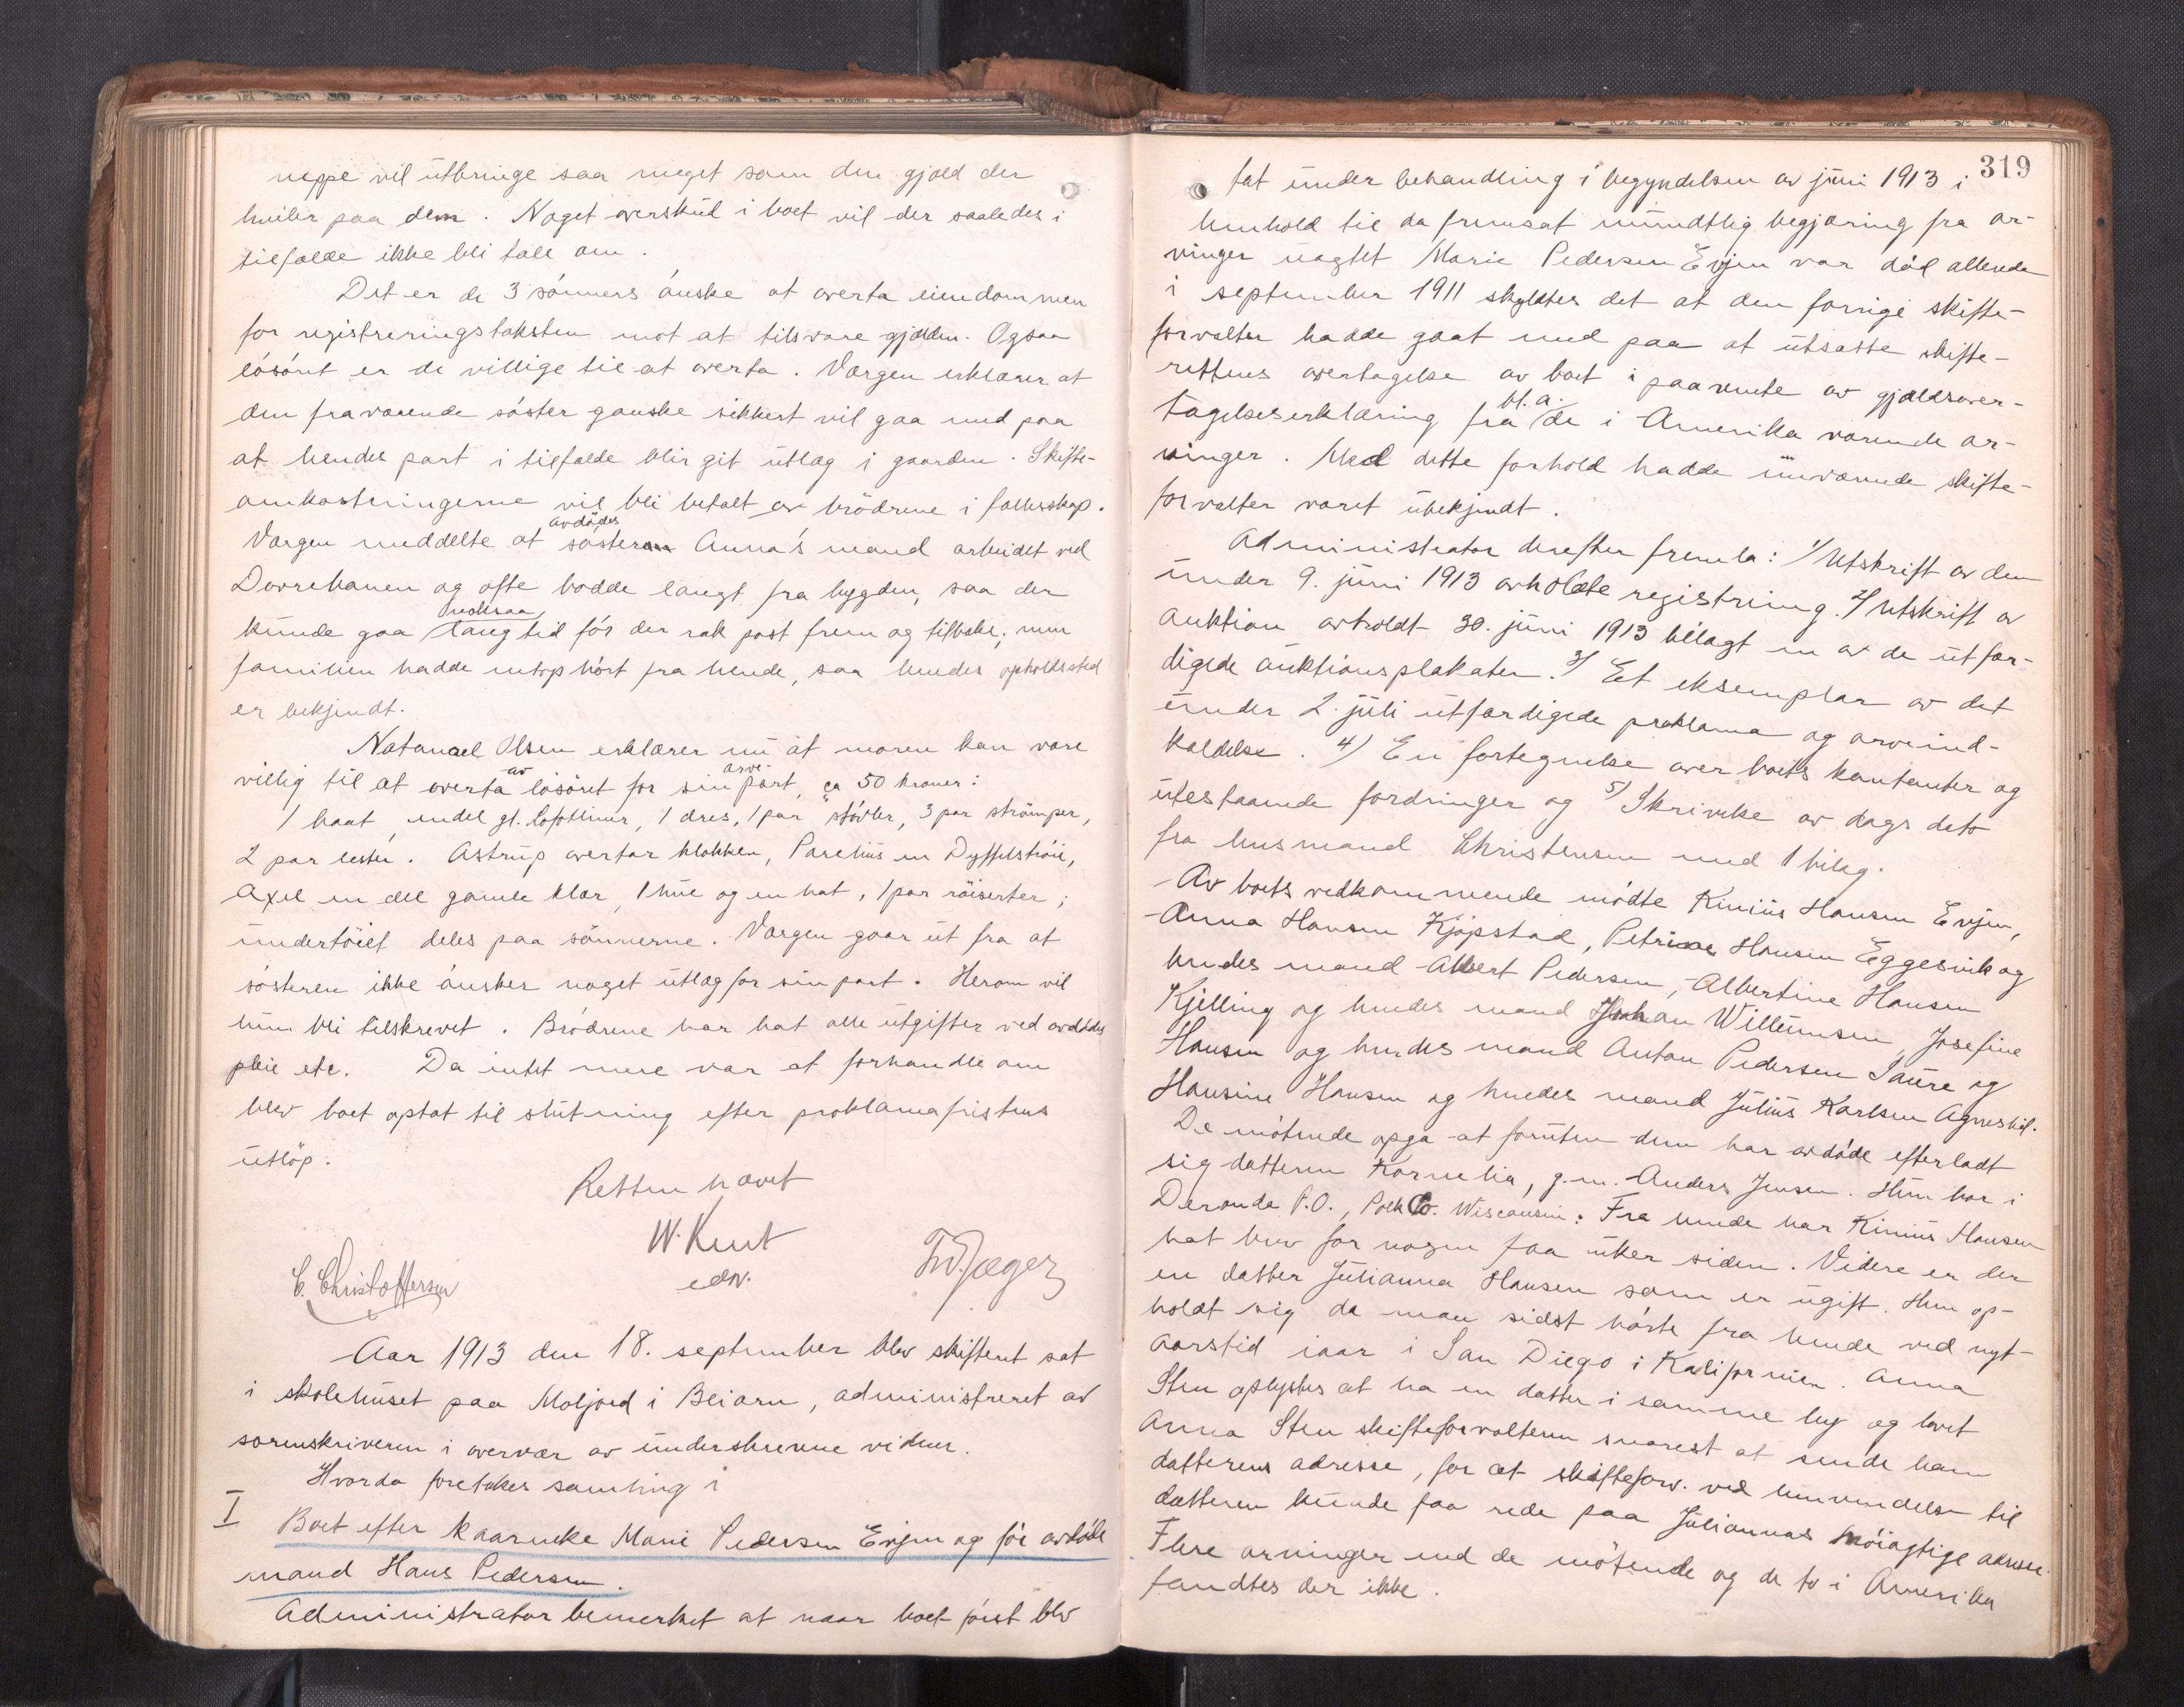 neppe vil utbringe saa meget som den gjæld der
hviler paa dem. Noget overskud i boet vil der saaledes i
tilfælde ikke bli tale om.
Det er de 3 sønners ønske at overta eiendommen
for registreringstaksten mot at tilsvare gjælden. Ogsaa
løsøret er de villige til at overta. Værgen erklærer at
den fraværende søster ganske sikkert vil gaa med paa
at hendes part i tilfælde blir git utlæg i gaarden. Skifte-
omkostningerne vil bli betalt av brødrene i fællesskap.
Værgen meddelte at avdødes søster Anna's mand arbeidet ved
Dovrebanen og ofte bodde langt fra bygden, saa der
kunde gaa noksaa lang tid før der rak post frem og tilbake; men
familien hadde netop hørt fra hende, saa hendes opholdssted
er bekjendt.
Natanael Olsen erklærer nu at moren kan være
villig til at overta av løsøret for sin arve-part, ca 50 kroner:
1 baat, endel gl. lofotliner, 1 dres, 1 par støvler, 3 par strømper,
2 par lester. Astrup overtar klokken, Parelius en Dyffelstrøie,
Axel en del gamle klær, 1 hue og en hat, 1 par røiserter;
undertøiet deles paa sønnerne. Værgen gaar ut fra at
søsteren ikke ønsker noget utlæg for sin part. Herom vil
hun bli tilskrevet. Brødrene har hat alle utgifter ved avdødes
pleie etc. Da intet mere var at forhandle om
blev boet optat til slutning efter proklamafristens
utløp.
Retten hævet
W. Kent
edv.
C. Christoffersen
Fr. Jæger
Aar 1913 den 18. september blev skifteret sat
i skolehuset paa Moljord i Beiarn, administreret av
sorenskriveren i overvær av underskrevne vidner.
Hvorda foretokes samling i
I Boet efter kaarenke Marie Pedersen Evjen og før avdøde
mand Hans Pedersen.
Administrator bemerket at naar boet først blev
319
tat under behandling i begyndelsen av juni 1913 i
henhold til da fremsat mundtlig begjæring fra ar-
vinger uagtet Marie Pedersen Evjen var død allerede
i september 1911 skyldtes det at den forrige skifte-
forvalter hadde gaat med paa at utsætte skifte-
rettens overtagelse av boet i paavente av gjældsover-
tagelseserklæring fra bl.a. de i Amerika værende ar-
vinger. Med dette forhold hadde nuværende skifte-
forvalter været ubekjendt.
Administrator derefter fremla: 1/ Utskrift av den
under 9. juni 1913 avholdte registrering. 2/ Utskrift av
auktion avholdt 30. juni 1913 bilagt en av de utfær-
digede auktionsplakater. 3/ Et eksemplar av det
under 2. juli utfærdigede proklama og arveind-
kaldelse. 4) En fortegnelse over boets kontanter og
utestaaende fordringer og 5/ Skrivelse av dags dato
fra husmand Christensen med 1 bilag.
Av boets vedkommende mødte Kinius Hansen Evjen,
Anna Hansen Kjøpstad, Petrine Hansen Eggesvik og
hendes mand Albert Pedersen, Albertine Hansen
Kjelling og hendes mand Johan Willumsen, Josefine
Hansen og hendes mand Anton Pedersen Saure og
Hansine Hansen og hendes mand Julius Karlsen Agneskil.
De møtende opga at foruten dem har avdøde efterladt
sig datteren Kornelia, g.m. Anders Jensen. Hun bor i
Deronda P.O., Polk Co. Wisconsin: Fra hende har Kinius Hansen
hat brev for nogen faa uker siden. Videre er der
en datter Julianna Hansen som er ugift. Hun op-
holdt sig da man sidst hørte fra hende ved nyt-
aarstid iaar i San Diego i Kalifornien. Anna
Sten oplystes at ha en datter i samme by og lovet
Anna Sten skifteforvalteren snarest at sende ham
datterens adresse, for at skifteforv. ved henvendelse til
datteren kunde faa rede paa Juliannas nøiagtige adresse.
Flere arvinger end de møtende og de to i Amerika
fandtes der ikke.